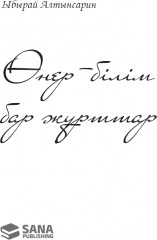 Ыбырай Алтынсарин
Өнер-білім
бар жұрттар
SANA
PUBLISHING